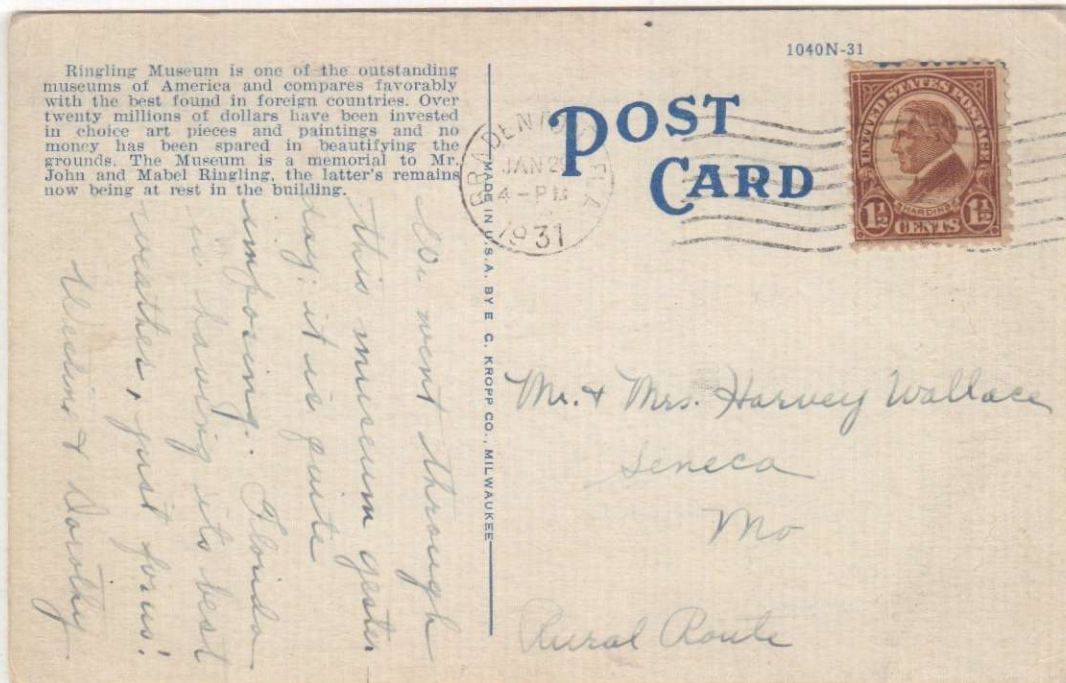 1040N-31
Ringling Museum is one of the outstanding
museums of America and compares favorably
with the best found in foreign countries. Over
twenty millions of dollars have been invested
in choice art pieces and paintings and no
money has been spared in beautifying the
grounds. The Museum is a memorial to Mr.
John and Mabel Ringling, the latter's remains
now being at rest in the building.
We went through
this museum yester-
day; it is quite
imposing. Florida
is having its best
weather, just for us!
& Dorothy
MADE IN U.S.A. BY E. C. KROPP CO., MILWAUKEE
POST
CARD
BRADENTON FLA
JAN 29
4-PM
1931
UNITED STATES POSTAGE
HARDING
1½ CENTS 1½
Mr. & Mrs. Harvey Wallace
Seneca
Mo
Rural Route